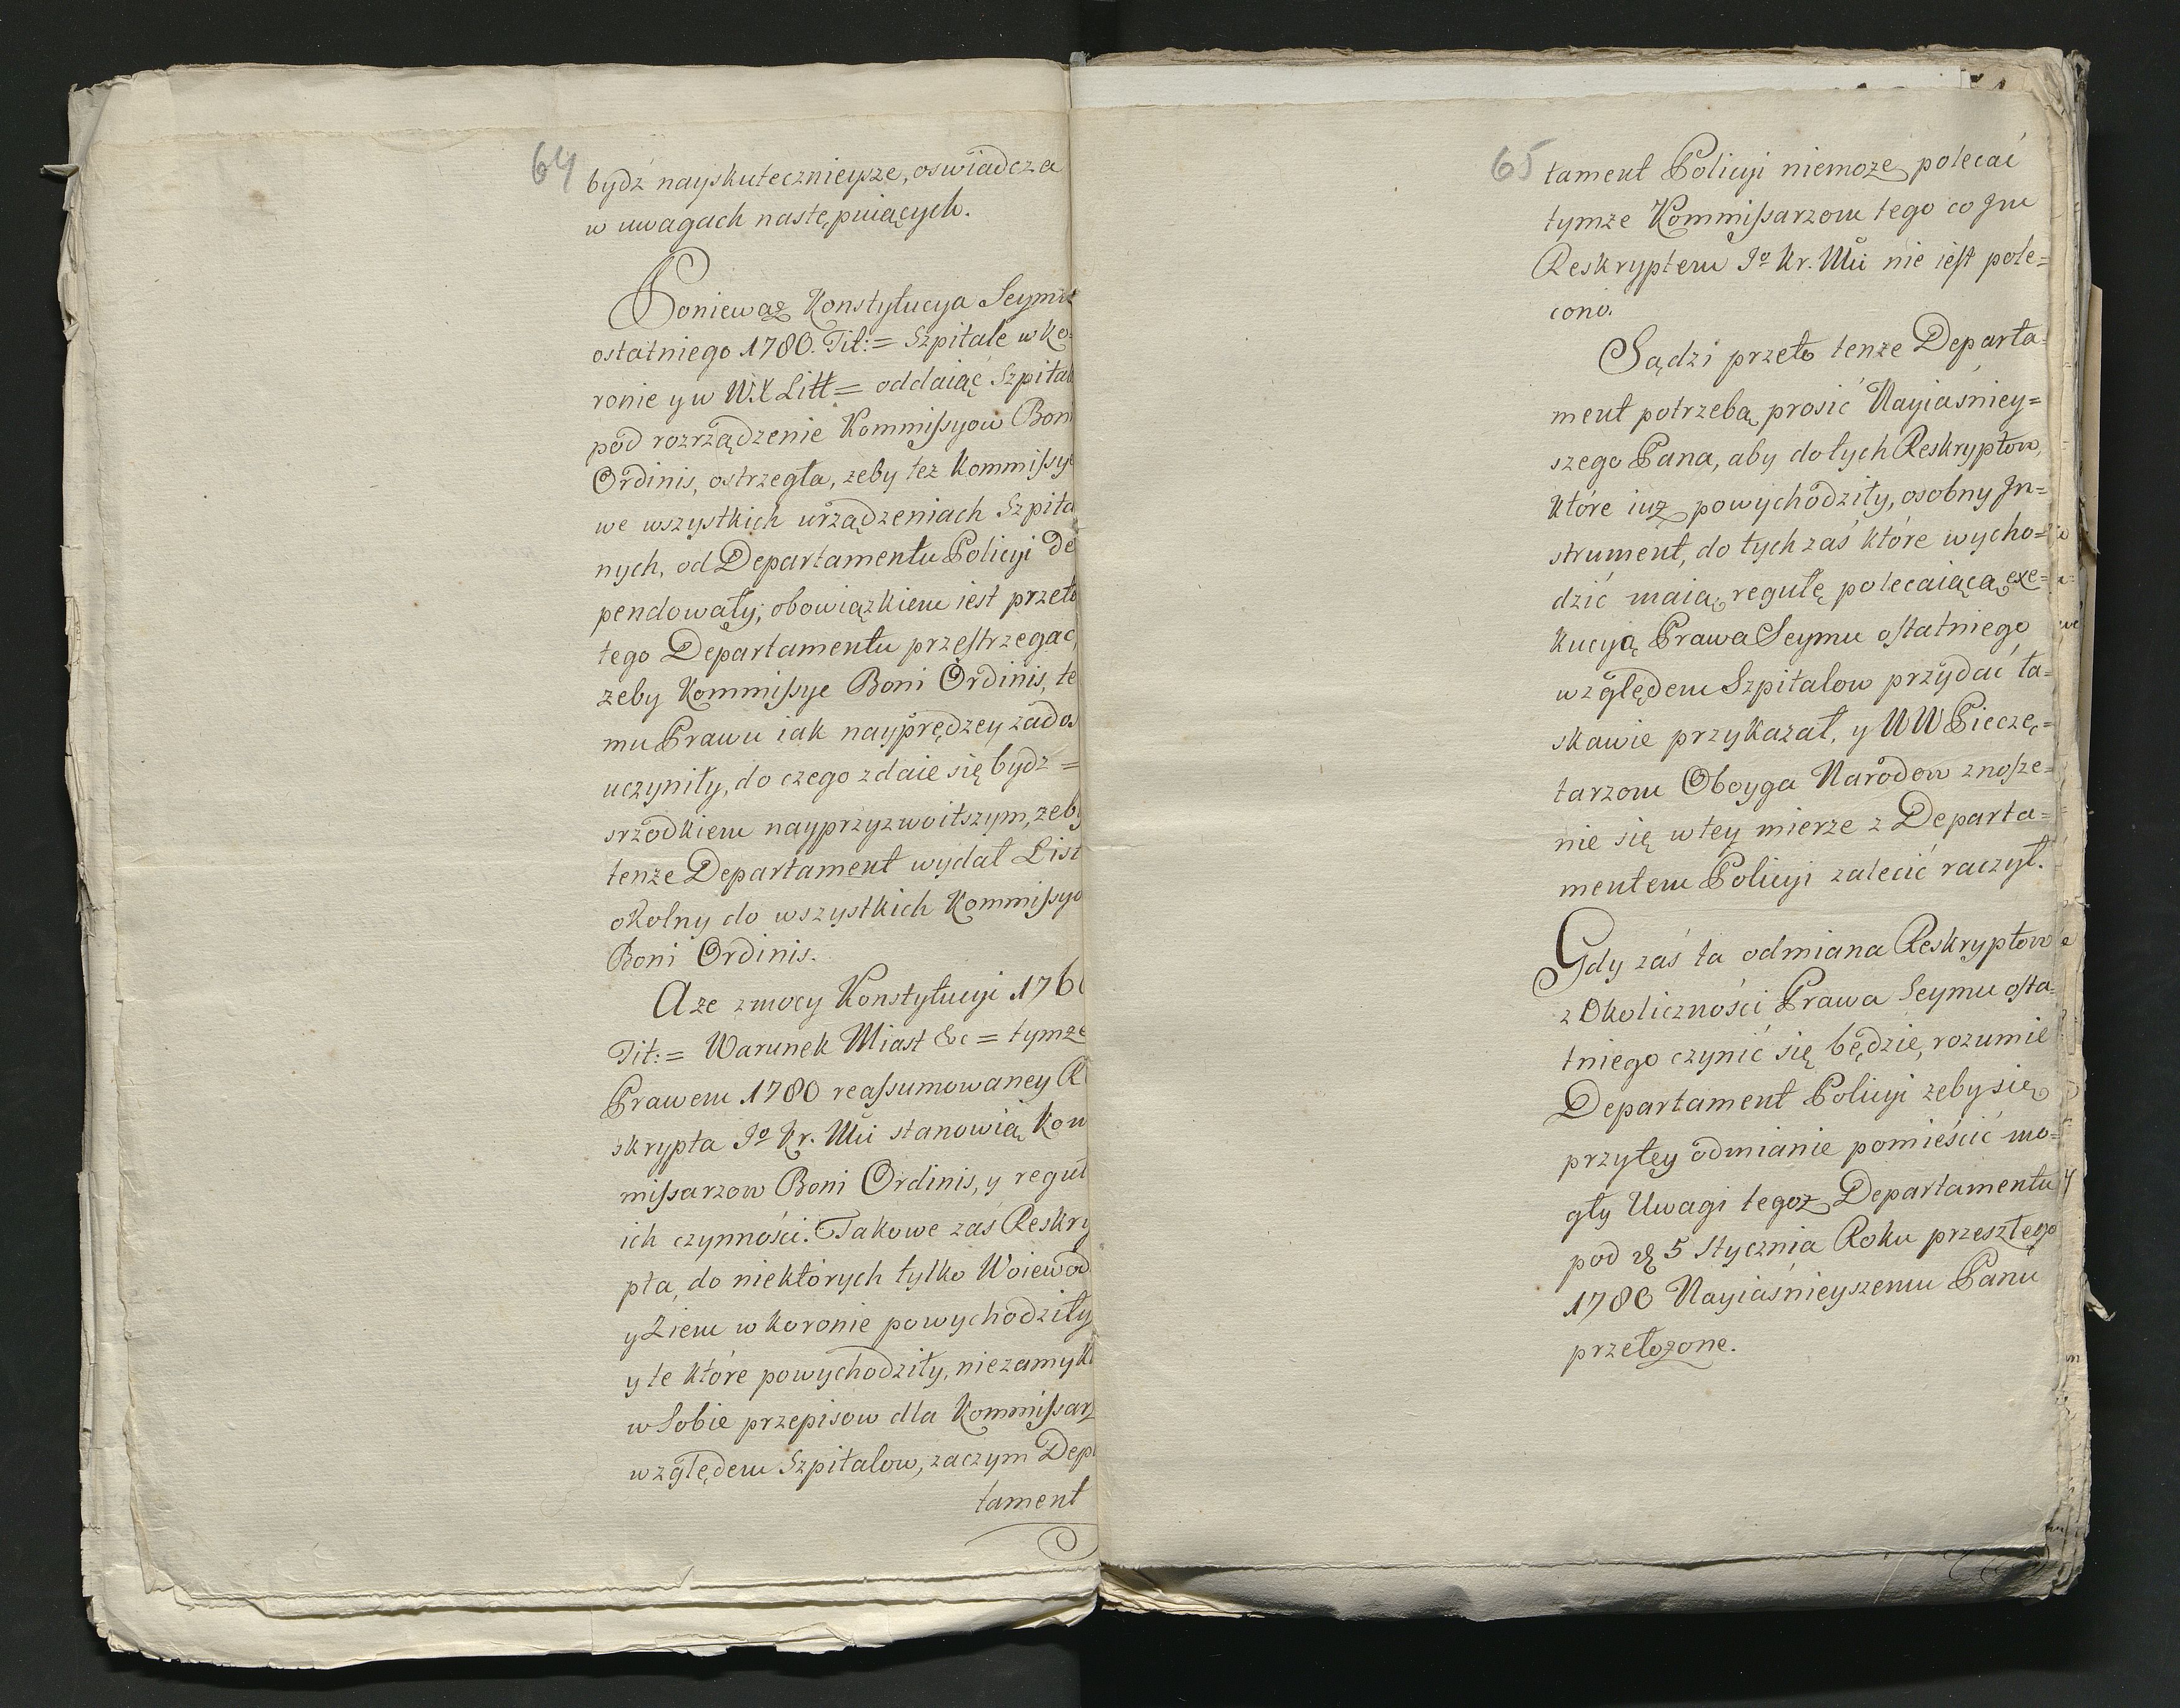 64
bydź nayskutecznieysze, oswiadcza
w uwagach następuiących.
Poniewaz Konstytucya Seymu
ostatniego 1780. Tit: = Szpitale w Ko=
ronie y w W.X Litt = oddaiąc Szpital
pod rozrządzenie Kommissyow Boni
Ordinis, ostrzegła, zeby tez Kommissye
we wszystkich urządzeniach Szpital
nych, od Departamentu Policyi de
pendowały; obowiązkiem iest przeto
tego Departamentu przestrzegac,
zeby Kommissye Boni Ordinis, te
mu Prawu iak nayprędzey zados
uczyniły, do czego zdaie się bydz =
srzodkiem nayprzyzwoitszym, zeby
tenze Departament wydał List
okolny do wszystkich Kommissyo
Boni Ordinis.
A ze z mocy Konstytucyi 176
Tit: = Warunek Miast &c = tymze
Prawem 1780 reassumowaney R
skrypta Jo Kr. Mci stanowią Kom
missarzow Boni Ordinis, y reguł
ich czynności. Takowe zaś Reskry
pta, do niektórych tylko Woiewod
y Ziem w Koronie powychodziły
y te które powychodziły, niezamyk
w Sobie przepisow dla Kommissarz
względem Szpitalow, zaczym Dep
tament
65
tament Policyi niemoze polecać
tymze Kommissarzom tego co Im
Reskryptem Jo Kr. Mci nie iest pole=
cono.
Sądzi przeto tenze Departa=
ment potrzebą prosić Nayiaśniey=
szego Pana, aby do tych Reskryptow,
które iuz powychodziły, osobny In=
strument, do tych zaś które wycho=
dzić maią, regułę polecaiącą exe=
kucyą Prawa Seymu ostatniego
względem Szpitalow przydać ła=
skawie przykazał, y WW Pieczę=
tarzom Oboyga Narodow znosze=
nie się w tey mierze z Departa=
mentem Policyi zalecić raczył.
Gdy zaś ta odmiana Reskryptow
z Okoliczności Prawa Seymu osta=
tniego czynić się będzie, rozumie
Departament Policyi zeby się
przy tey odmianie pomieścić mo=
gły Uwagi tegoz Departamentu
pod d 5 Stycznia Roku przeszłego
1780 Nayiaśnieyszemu Panu
przełozone.